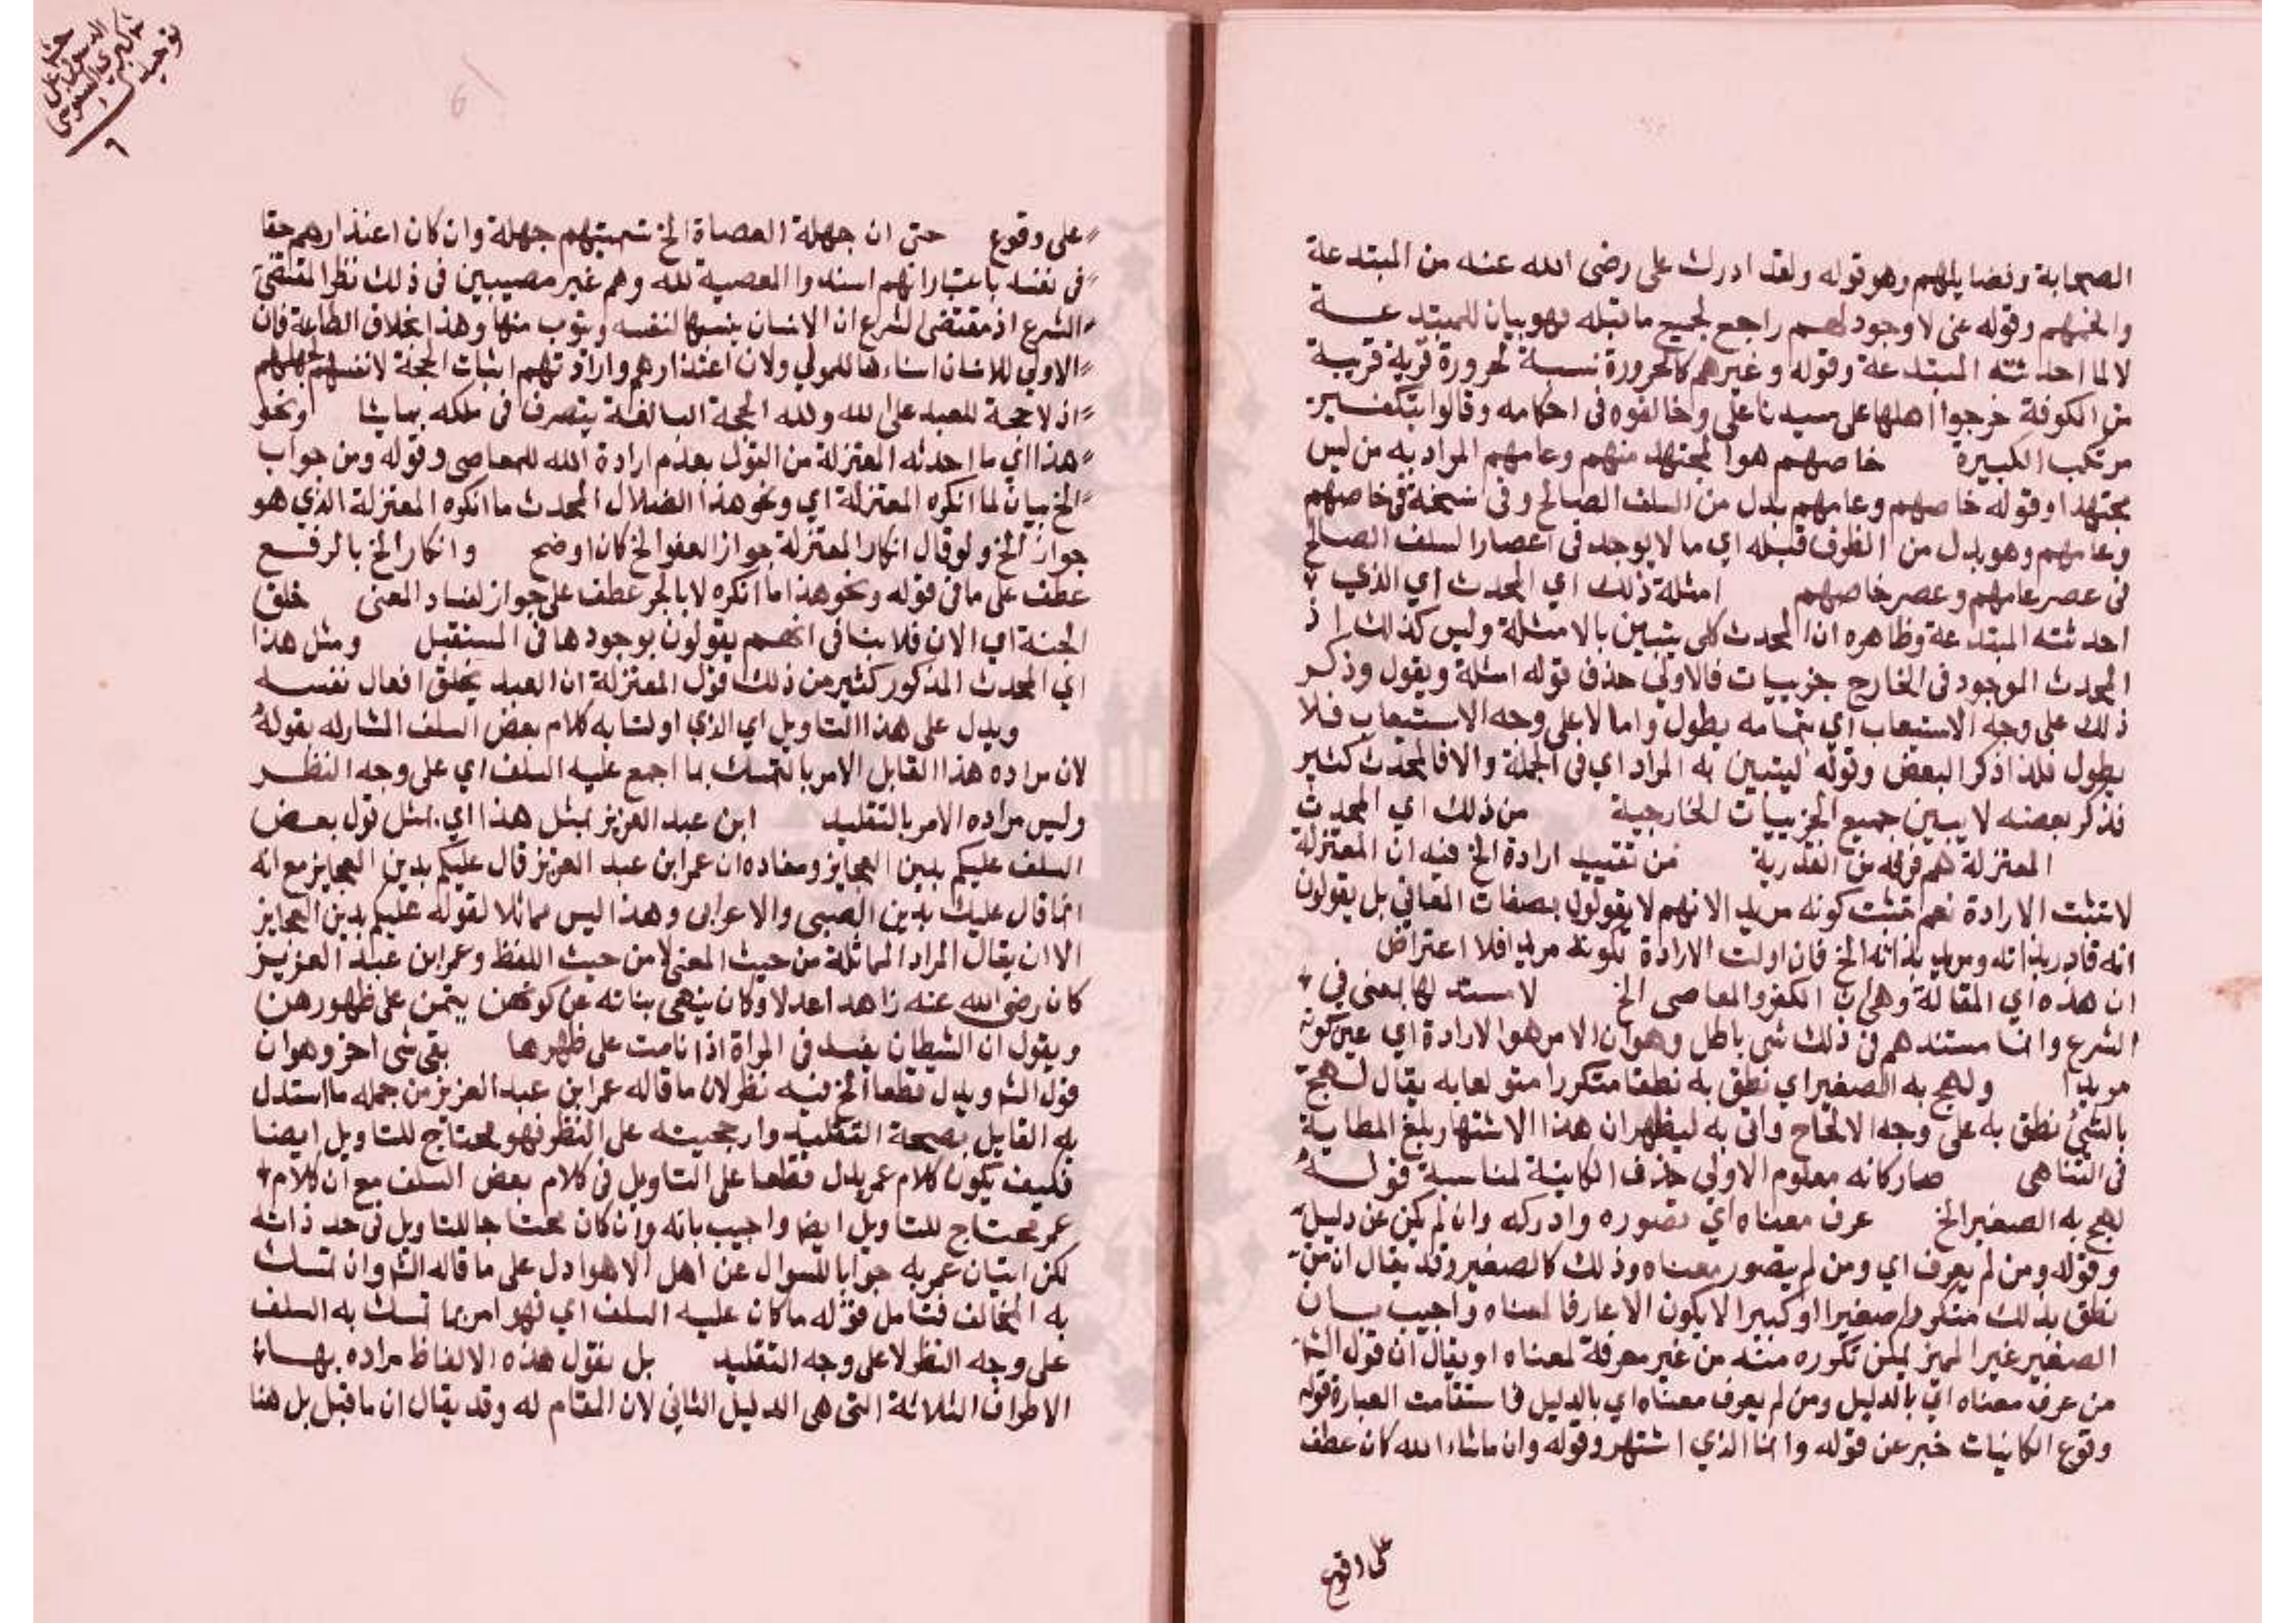 الصحابة وفضايلهم وهو قوله ولقد ادرك على رضى الله عنه من المبتدعة
وقوله عن لا وجود لهم راجع لجميع ما قبله فهو بيان للمبتدعة
لا لما احدثته المبتدعة وقوله وغيرهم كالحرورة نسبة لحرورة قرية قريبة
من الكوفة خرجوا اهلها على سيدنا على وخالفوه فى احكامه وقالوا بتكفير
مرتكب الكبيرة خاصهم هو المجتهد منهم وعامهم المراد به من ليس
مجتهدا وقوله خاصهم وعامهم بدل من السلف الصالح وفى نسخة فى خاصهم
وعامهم وهو بدل من الظرف قبله اي ما لا يوجد فى اعصار السلف الصالح
فى عصر عامهم وعصر خاصهم امثلة ذلك اي المحدث اي الذي
احدثته المبتدعة وظاهره ان المحدث كلى يتبين بالامثلة وليس كذلك اذ
المحدث الموجود فى الخارج جزييات فالاولى حذف قوله امثلة ويقول وذكر
ذلك على وجه الاستعاب اي بتمامه يطول واما لا على وجه الاستيعاب فلا
يطول فلذا ذكر البعض وقوله ليتبين به المراد اي فى الجملة والا فالمحدث كثير
فذكر بعضه لا يبين جميع الجزييات الخارجية من ذلك اي المحدث
المعتزلة هم فرقة من القدرية من تقييد ارادة الخ فيه ان المعتزلة
لا تثبت الارادة نعم تثبت كونه مريد الا نهم لا يقولون بصفات المعانى بل يقولون
انه قادر بذاته ومريد بذاته الخ فان اولت الارادة بكونه مريدا فلا اعتراض
ان هذه اي المقالة وهى ان الكفر والمعاصى الخ لا مستند لها يعنى في
الشرع وانما مستندهم فى ذلك شى باطل وهو ان الامر هو الارادة اي عين كونه
مريدا ولهج به الصغير اي نطق به نطقا متكررا متولعا به يقال لهج
بالشئ نطق به على وجه الالحاح واتى به ليظهر ان هذا الاشتهار بلغ المطابية
فى التناهى صار كانه معلوم الاولى حذف الكاينة لمناسبة قوله
لهج به الصغير الخ عرف معناه اي تصوره وادركه وان لم يكن عن دليل
وقوله ومن لم يعرف اي ومن لم يتصور معناه وذلك كالصغير وقد يقال ان من
نطق بذلك متكررا صغيرا او كبيرا لا يكون الا عارفا لمعناه واجيب بان
الصغير غير المميز يمكن تكرره منه من غير معرفة لمعناه او يقال ان قول الش
من عرف معناه اي بالدليل ومن لم يعرف معناه اي بالدليل فاستقامت العبارة قوله
وقوع الكانيات خبر عن قوله وانما الذي اشتهر وقوله وان ما شاء الله كان عطف
على وقوع
على وقوع حتى ان جهلة العصاة الخ تسميتهم جهلة وان كان اعتذارهم حقا
فى نفسه باعتبار انهم اسندوا المعصية لله وهم غير مصيبين فى ذلك نظرا لمقتضى
الشرع اذ مقتضى الشرع ان الانسان ينسبها لنفسه ويتوب منها وهذا بخلاف الطاعة فان
الاولى للانسان اسنادها للمولى ولان اعتذارهم وارادتهم اثبات الحجة لانفسهم بجهلهم
اذ لا حجة للعبد على الله ولله الحجة البالغة يتصرف فى ملكه بما يشا ونحو
هذا اي ما احدثه المعتزلة من القول بعدم ارادة الله للمعاصى وقوله ومن جواب
الخ بيان لما انكره المعتزلة اي ونحو هذا الضلال المحدث ما انكره المعتزلة الذي هو
جواز الخ ولو قال انكار المعتزلة جواز العفو الخ كان اوضح وانكار الخ بالرفع
عطف على ما فى قوله ونحو هذا ما انكره لا بالجر عطف على جواز لفساد المعنى خلق
الجنة اي الان فلا ينافى انهم يقولون بوجودها فى المستقبل ومثل هذا
اي المحدث المذكور كثير من ذلك قول المعتزلة ان العبد يخلق افعال نفسه
ويدل على هذا التاويل اي الذي اولنا به كلام بعض السلف المشار له بقوله
لان مراده هذا القايل الامر بالتمسك بما اجمع عليه السلف اي على وجه النظر
وليس مراده الامر بالتقليد ابن عبد العزيز بمثل هذا اي بمثل قول بعض
السلف عليكم بدين العجايز ومفاده ان عمر ابن عبد العزيز قال عليكم بدين العجايز مع انه
انما قال عليك بدين الصبى والاعرابى وهذا ليس مماثلا لقوله عليكم بدين العجايز
الا ان يقال المراد المماثلة من حيث المعنى لا من حيث اللفظ وعمر ابن عبد العزيز
كان رضى الله عنه زاهدا عدلا وكان ينهى بناته عن كونهن ينمن على ظهورهن
ويقول ان الشيطان يفسد فى المراة اذا نامت على ظهرها بقى شى اخر وهو ان
قول الش ويدل قطعا الخ فيه نظر لان ما قاله عمر ابن عبد العزيز من جمله ما استدل
به القايل بصحة التقليد وارجحيته على النظر فهو محتاج للتاويل ايضا
فكيف يكون كلام عمر يدل قطعا على التاويل فى كلام بعض السلف مع ان كلام
عمر محتاج للتاويل ايضا واجيب بانه وان كان محتاجا للتاويل فى حد ذاته
لكن اتيان عمر به جوابا للسوال عن اهل الاهوا دل على ما قاله الش وان تمسك
به المخالف فتامل قوله ما كان عليه السلف اي فهو امر بما تمسك به السلف
على وجه النظر لا على وجه التقليد بل نقول هذه الالفاظ مراده بها
الاطراف الثلاثة التى هى الدليل الثانى لان المقام له وقد يقال ان ما قبل بل هنا